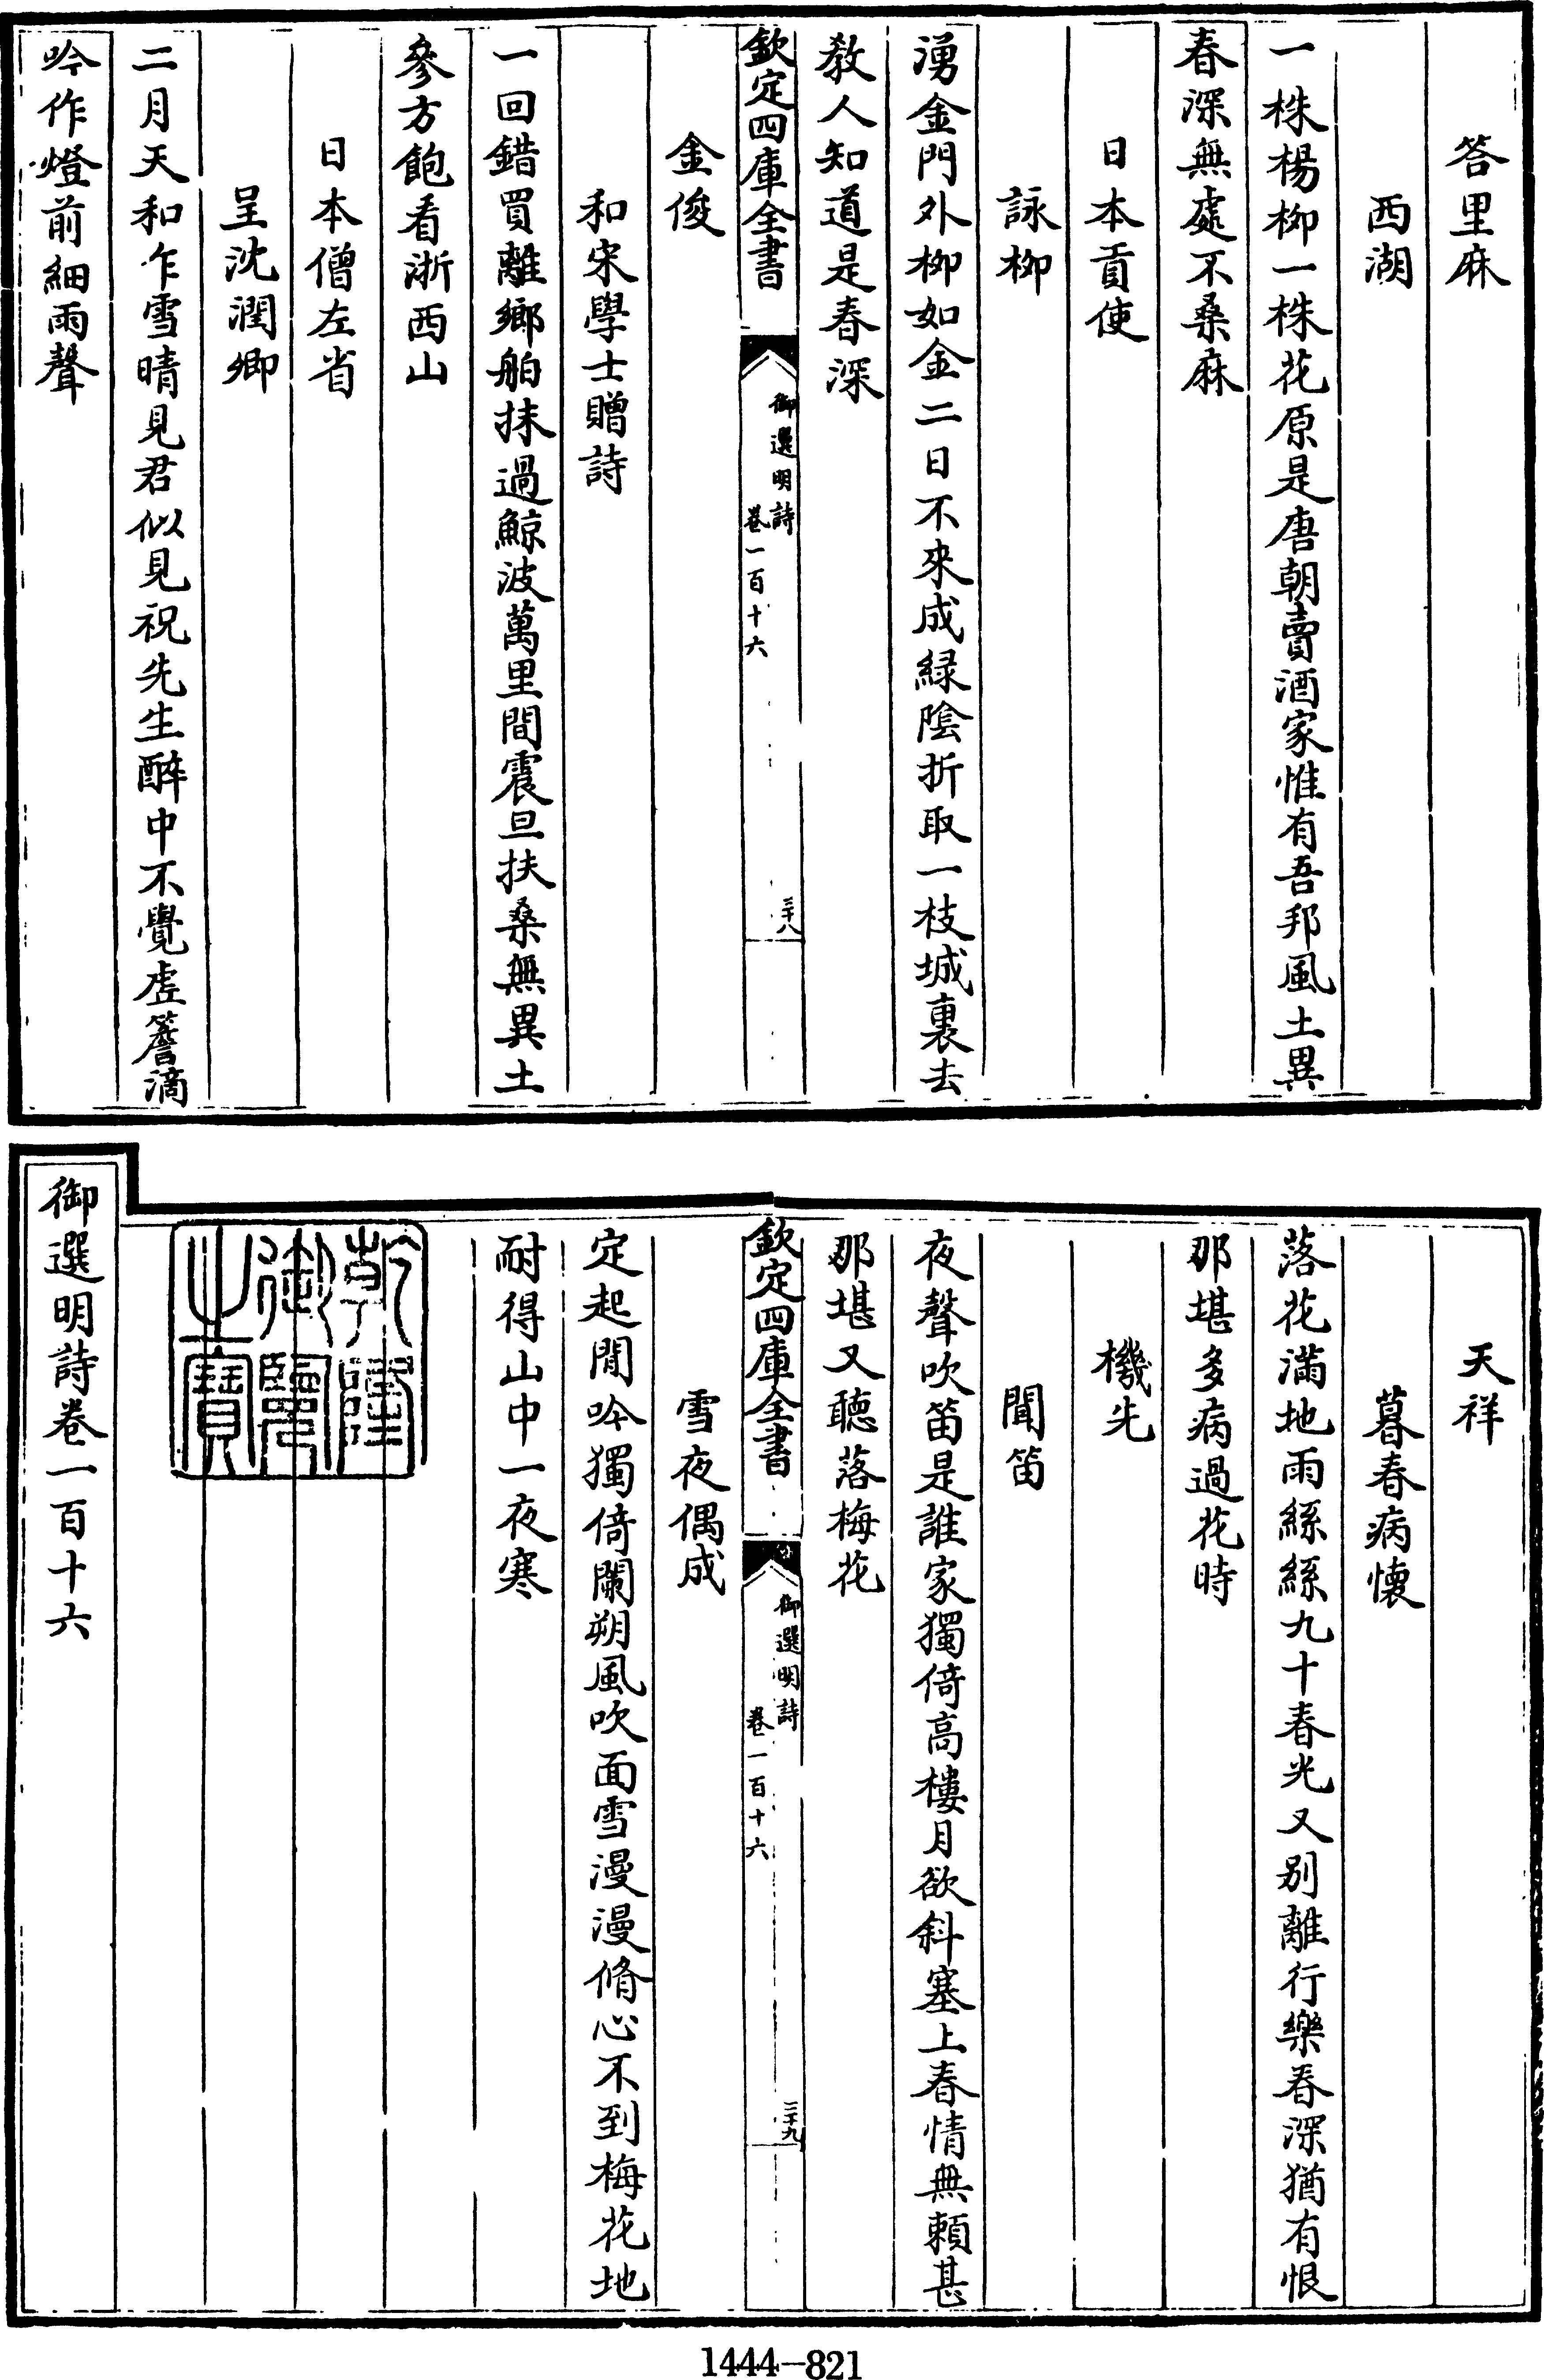 答里麻
西湖
一株楊柳一株花原是唐朝賣酒家惟有吾邦風土異
春深無處不桑麻
日本貢使
詠柳
湧金門外柳如金二日不來成緑陰折取一枝城裏去
教人知道是春深
欽定四庫全書
御選明詩
卷一百十六
三十八
金俊
和宋學士贈詩
一回錯買離鄉舶抹過鯨波萬里間震旦扶桑無異土
參方飽看浙西山
日本僧左省
呈沈潤卿
二月天和乍雪晴見君似見祝先生醉中不覺虛簷滴
吟作燈前細雨聲
天祥
暮春病懷
落花滿地雨絲絲九十春光又别離行樂春深猶有恨
那堪多病過花時
機先
聞笛
夜聲吹笛是誰家獨倚高樓月欲斜塞上春情無賴甚
那堪又聽落梅花
欽定四庫全書
御選明詩
卷一百十六
三十九
雪夜偶成
定起閒吟獨倚闌朔風吹面雪漫漫脩心不到梅花地
耐得山中一夜寒
乾隆
御覽
之寶
御選明詩卷一百十六
1444-821